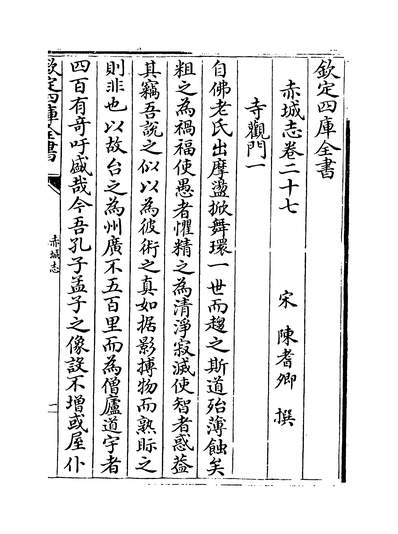 欽定四庫全書
赤城志卷二十七
宋 陳耆卿 撰
寺觀門一
自佛老氏出摩盪掀舞環一世而趨之斯道殆薄蝕矣
粗之為禍福使愚者懼精之為清淨寂滅使智者惑葢
其竊吾說之似以為彼術之真如据影搏物而熟眎之
則非也以故台之為州廣不五百里而為僧廬道宇者
四百有奇吁盛哉今吾孔子孟子之像設不增或屋仆
欽定四庫全書
赤城志
一